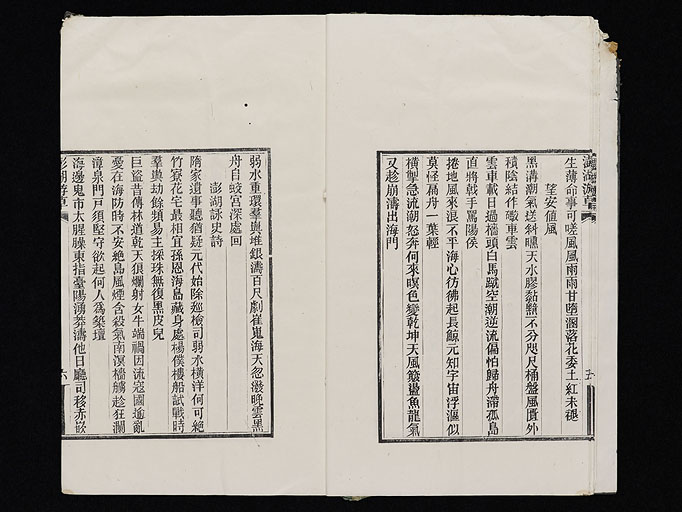 澎湖游草
五
生薄命事可嗟風風雨雨甘墮溷落花委土紅未褪
望安値風
黑溝潮氣送斜曛天水膠黏黯不分咫尺桶盤風閩外
積陰結作礮車雲
雲車載日過檣頭白馬蹴空潮逆流偏怕歸舟滯孤島
直將戟手罵陽侯
捲地風來浪不平海心彷彿起長鯨元知宇宙浮漚似
莫怪扁舟一葉輕
橫掣急流潮怒奔何來暝色變乾坤天風簸盪魚龍氣
又趁崩濤出海門
弱水重環羣輿堆銀濤百尺劇崔嵬海天忽潑晚雲黑
舟自蛟宮深處回
澎湖詠史詩
隋家遺事聽猶疑元代始除廵檢司弱水橫洋何可絶
竹寮花宅最相宜孫恩海島藏身處楊僕樓船試戰時
羣輿劫餘頻易主採珠無復黑皮兒
巨盜昔傳林道乾天狼爛射女牛端禍因流寇圖遙亂
憂在海防時不安絶島風煙含殺氣南溟檣艣趁狂瀾
漳泉門戸須堅守欲起何人爲築壇
海邊鬼市太腥臊東指臺陽湧莽濤他日廳司移赤嵌
澎湖游草
六